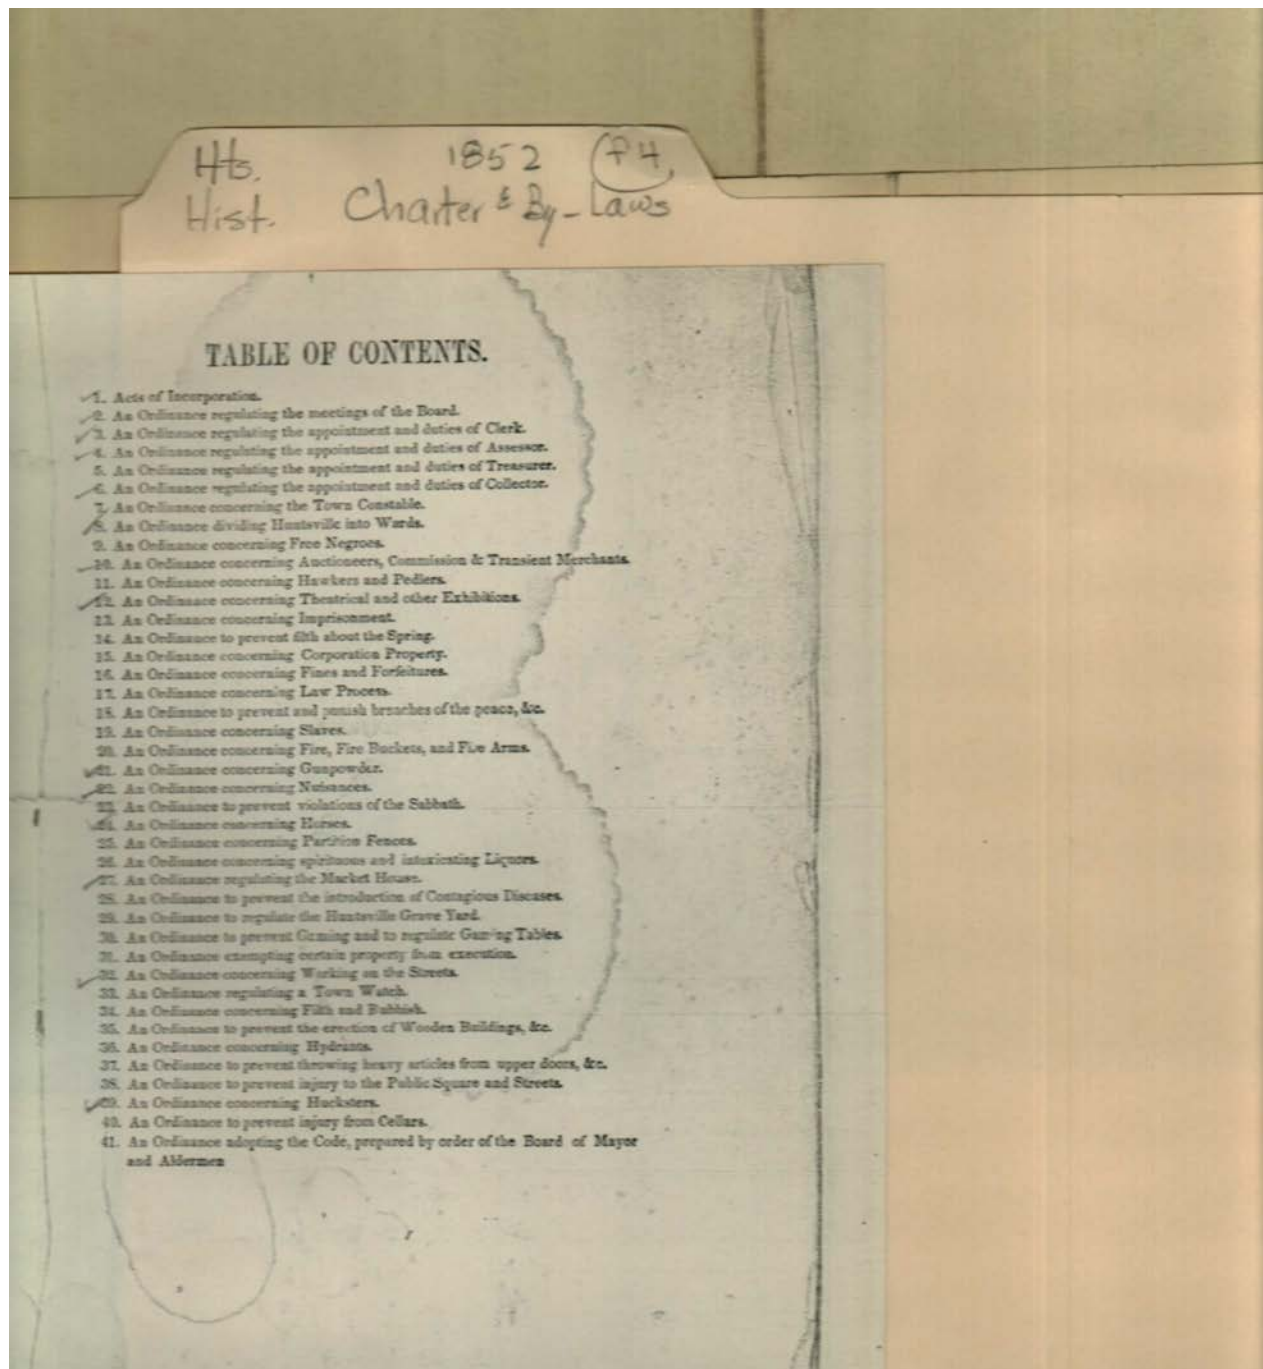 Hts. 1852 P4
Hist. Charter & By-Laws
TABLE OF CONTENTS.
1. Acts of Incorporation.
2. An Ordinance regulating the meetings of the Board.
3. An Ordinance regulating the appointment and duties of Clerk.
4. An Ordinance regulating the appointment and duties of Assessor.
5. An Ordinance regulating the appointment and duties of Treasurer.
6. An Ordinance regulating the appointment and duties of Collector.
7. An Ordinance concerning the Town Constable.
8. An Ordinance dividing Huntsville into Wards.
9. An Ordinance concerning Free Negroes.
10. An Ordinance concerning Auctioneers, Commission & Transient Merchants.
11. An Ordinance concerning Hawkers and Pedlers.
12. An Ordinance concerning Theatrical and other Exhibitions.
13. An Ordinance concerning Imprisonment.
14. An Ordinance to prevent filth about the Spring.
15. An Ordinance concerning Corporation Property.
16. An Ordinance concerning Fines and Forfeitures.
17. An Ordinance concerning Law Process.
18. An Ordinance to prevent and punish breaches of the peace, &c.
19. An Ordinance concerning Slaves.
20. An Ordinance concerning Fire, Fire Buckets, and Fire Arms.
21. An Ordinance concerning Gunpowder.
22. An Ordinance concerning Nuisances.
23. An Ordinance to prevent violations of the Sabbath.
24. An Ordinance concerning Horses.
25. An Ordinance concerning Partition Fences.
26. An Ordinance concerning spirituous and intoxicating Liquors.
27. An Ordinance regulating the Market House.
28. An Ordinance to prevent the introduction of Contagious Diseases.
29. An Ordinance to regulate the Huntsville Grave Yard.
30. An Ordinance to prevent Gaming and to regulate Gaming Tables.
31. An Ordinance exempting certain property from execution.
32. An Ordinance concerning Working on the Streets.
33. An Ordinance regulating a Town Watch.
34. An Ordinance concerning Filth and Rubbish.
35. An Ordinance to prevent the erection of Wooden Buildings, &c.
36. An Ordinance concerning Hydrants.
37. An Ordinance to prevent throwing heavy articles from upper doors, &c.
38. An Ordinance to prevent injury to the Public Square and Streets.
39. An Ordinance concerning Hucksters.
40. An Ordinance to prevent injury from Cellars.
41. An Ordinance adopting the Code, prepared by order of the Board of Mayor
and Aldermen